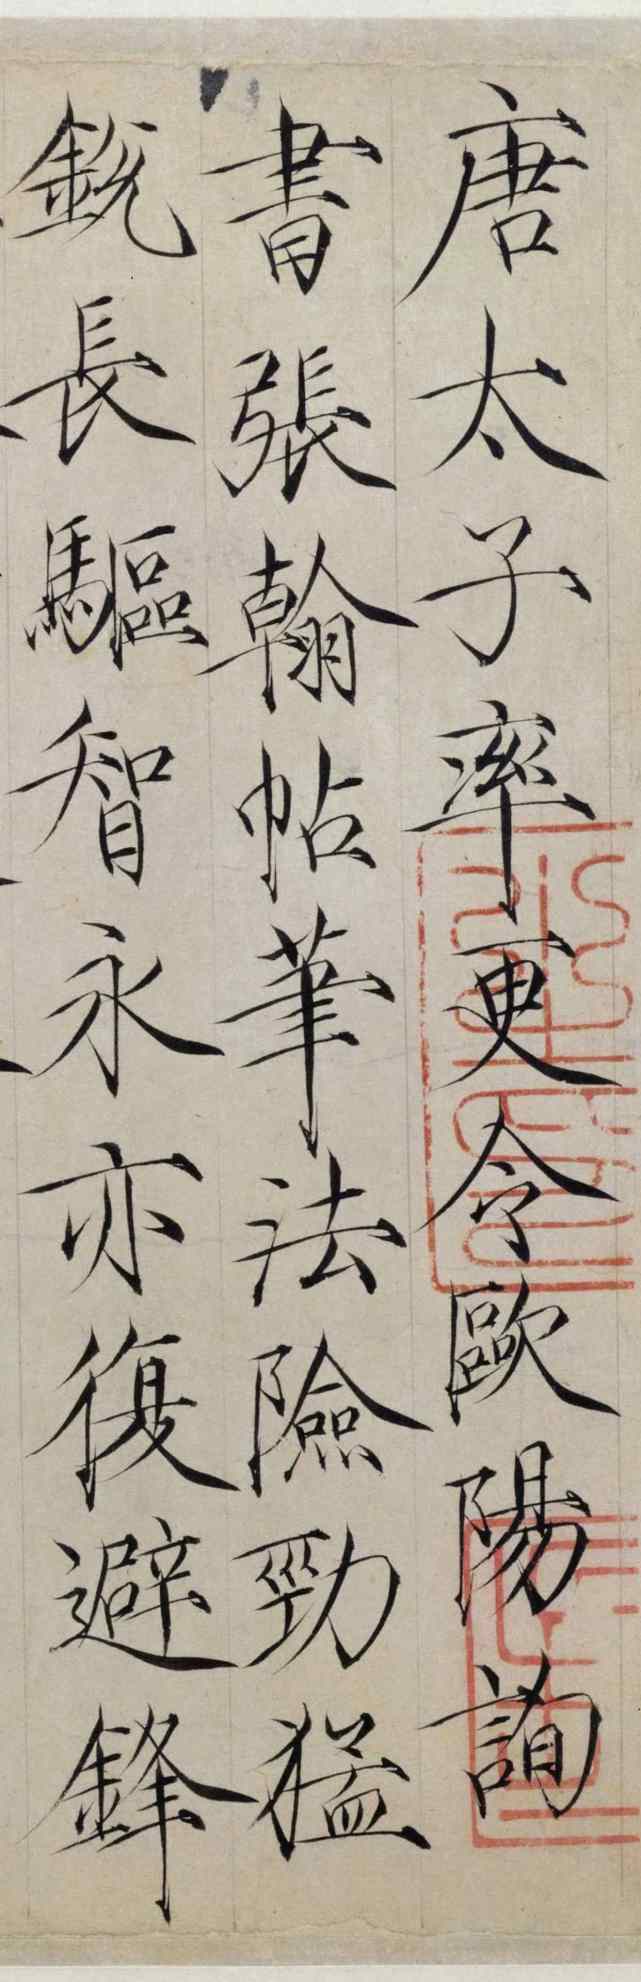 唐太子率更令歐陽詢
書張翰帖筆法險勁猛
銳長驅智永亦復避鋒